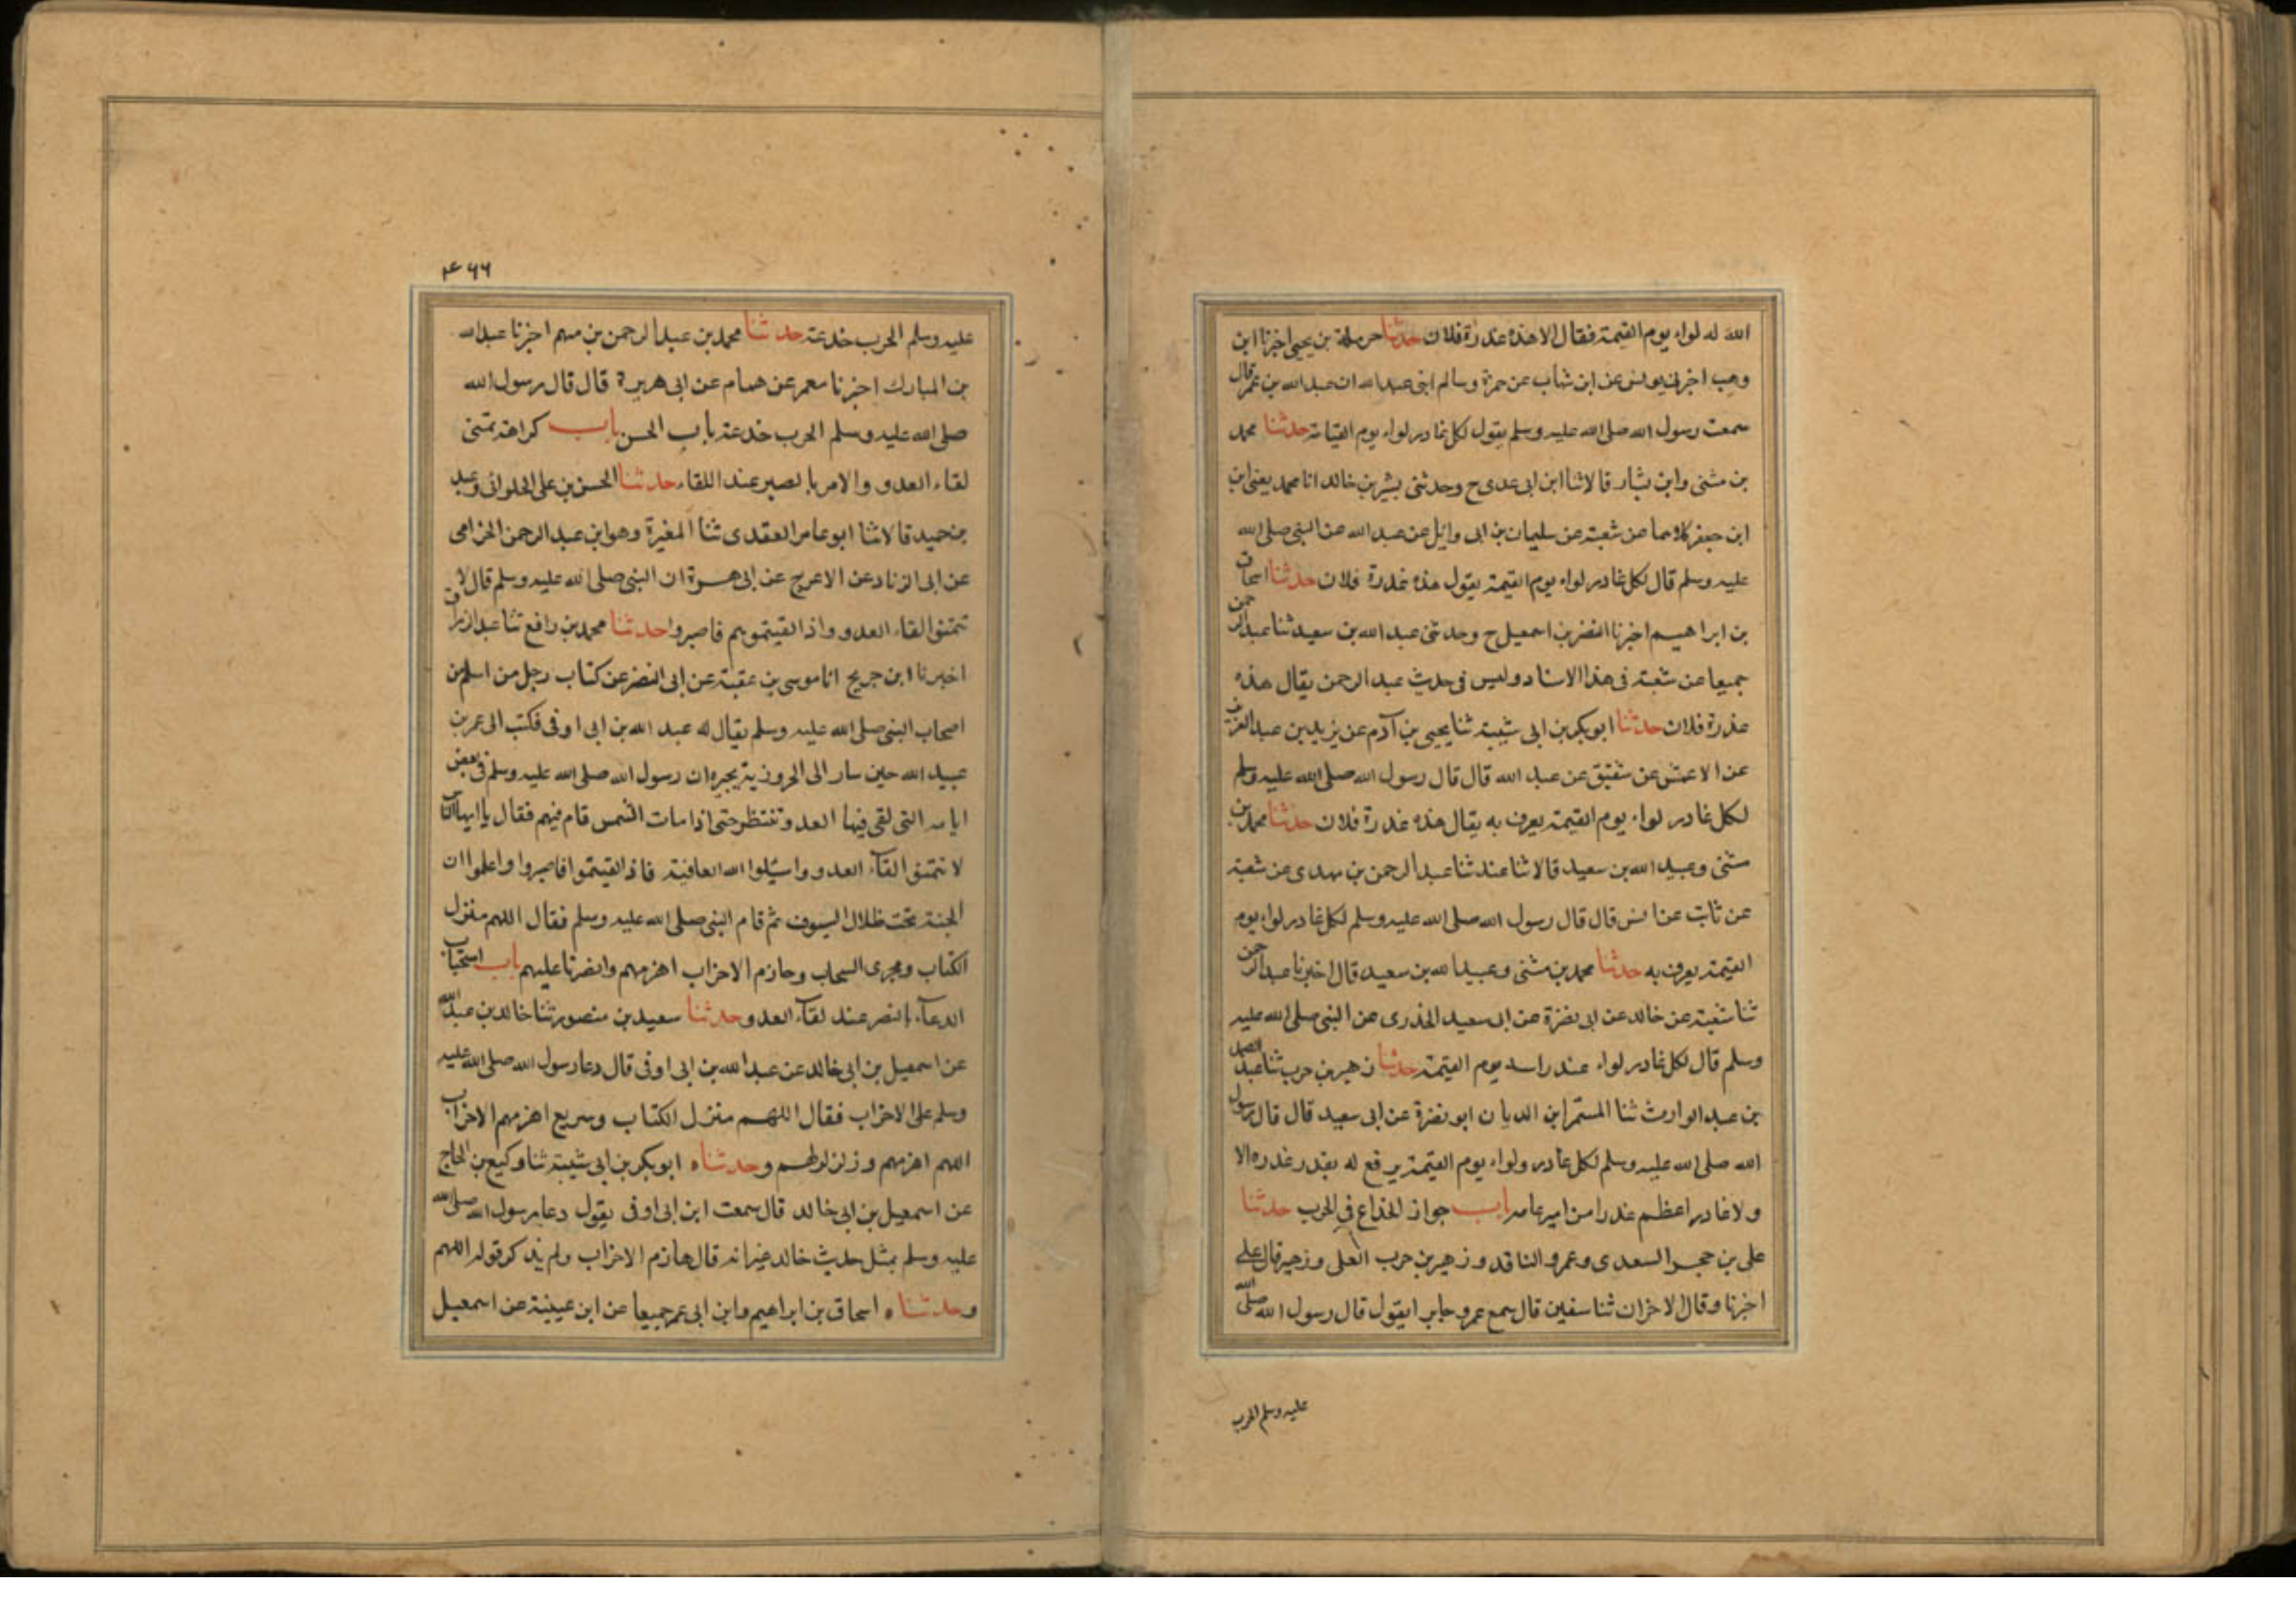 الله له لواء يوم القيمة فقال الا هذه غدرة فلان حدثنا حرملة بن يحيى اخبرنا ابن
وهب اخبرنى يونس عن ابن شهاب عن حمزة وسالم ابنى عبد الله ان عبد الله بن عمر قال
سمعت رسول الله صلى الله عليه وسلم يقول لكل غادر لواء يوم القيامة حدثنا محمد
بن مثنى وابن بشار قالا ثنا ابن ابى عدى ح وحدثنى بشر بن خالد انا محمد يعنى ابن
ابن جعفر كلاهما عن شعبة عن سليمان بن ابى وائل عن عبد الله عن النبى صلى الله
عليه وسلم قال لكل غادر لواء يوم القيمة يقول هذه غدرة فلان حدثنا اسحاق
بن ابراهيم اخبرنا النضر بن اسمعيل ح وحدثنى عبد الله بن سعيد ثنا عبد الرحمن
جميعا عن شعبة فى هذا الاسناد وليس فى حديث عبد الرحمن يقال هذه
غدرة فلان حدثنا ابو بكر بن ابى شيبة ثنا يحيى بن آدم عن يزيد بن عبد العزيز
عن الاعمش عن شقيق عن عبد الله قال قال رسول الله صلى الله عليه وسلم
لكل غادر لواء يوم القيمة يعرف به يقال هذه غدرة فلان حدثنا محمد بن
مثنى وعبيد الله بن سعيد قالا ثنا عند ثنا عبد الرحمن بن مهدى عن شعبة
عن ثابت عن انس قال قال رسول الله صلى الله عليه وسلم لكل غادر لواء يوم
القيمة يعرف به حدثنا محمد بن مثنى وعبيد الله بن سعيد قال اخبرنا عبد الرحمن
ثنا شعبة عن خالد عن ابى نضرة عن ابى سعيد الخدرى عن النبى صلى الله عليه
وسلم قال لكل غادر لواء عند راسه يوم القيمة حدثنا زهير بن حرب ثنا عبد الصمد
بن عبد الوارث ثنا المستمر ابن الديان ابو نضرة عن ابى سعيد قال قال رسول
الله صلى الله عليه وسلم لكل غادر ولواء يوم القيمة يرفع له بقدر غدره الا
ولا غادر اعظم غدرا من امير عامه باب جواز الخداع فى الحرب حدثنا
على بن حجر السعدى وعمرو الناقد وزهير بن حرب العلى وزهير قال على
اخبرنا وقال الاخران ثنا سفين قال سمع عمرو جابر ايقول قال رسول الله صلى الله
عليه وسلم الحرب
۴۶۶
عليه وسلم الحرب خدعة حدثنا محمد بن عبد الرحمن بن سهم اخبرنا عبد الله
بن المبارك اخبرنا معمر عن همام عن ابى هريرة قال قال رسول الله
صلى الله عليه وسلم الحرب خدعة باب الحسن باب كراهة تمنى
لقاء العدو والامر بالصبر عند اللقاء حدثنا الحسن بن على الحلوانى وعبد
بن حميد قالا ثنا ابو عامر العقدى ثنا المغيرة وهو ابن عبد الرحمن الحزامى
عن ابى الزناد عن الاعرج عن ابى هريرة ان النبى صلى الله عليه وسلم قال لا
تتمنوا لقاء العدو واذا لقيتموهم فاصبروا حدثنا محمد بن رافع ثنا عبد الرزاق
اخبرنا ابن جريج انا موسى بن عقبة عن ابى النضر عن كتاب رجل من اسلم من
اصحاب النبى صلى الله عليه وسلم يقال له عبد الله بن ابى اوفى فكتب الى عمر بن
عبيد الله حين سار الى الحرورية يخبره ان رسول الله صلى الله عليه وسلم فى بعض
ايامه التى لقى فيها العدو تنتظر حتى اذا مات الشمس قام فيهم فقال يا ايها الناس
لا تتمنوا لقآء العدو واسئلوا الله العافية فاذ القيتموا فاصبروا واعلموا ان
الجنة تحت ظلال السيوف ثم قام النبى صلى الله عليه وسلم فقال اللهم منزل
الكتاب ومجرى السحاب وهازم الاحزاب اهزمهم وانصرنا عليهم باب استحباب
الدعآء بالنصر عند لقآء العدو حدثنا سعيد بن منصور ثنا خالد بن عبد الله
عن اسمعيل بن ابى خالد عن عبد الله بن ابى اوفى قال دعا رسول الله صلى الله عليه
وسلم على الاحزاب فقال اللهم منزل الكتاب وسريع اهزمهم الاحزاب
اللهم اهزمهم وزلزلهم وحدثناه ابو بكر بن ابى شيبة ثنا وكيع بن الجاج
عن اسمعيل بن ابى خالد قال سمعت ابن ابى اوفى يقول دعا رسول الله صلى الله
عليه وسلم بمثل حديث خالد غير انه قال هازم الاحزاب ولم يذكر قوله اللهم
وحدثناه اسحاق بن ابراهيم وابن ابى عمر جميعا عن ابن عيينة عن اسمعيل